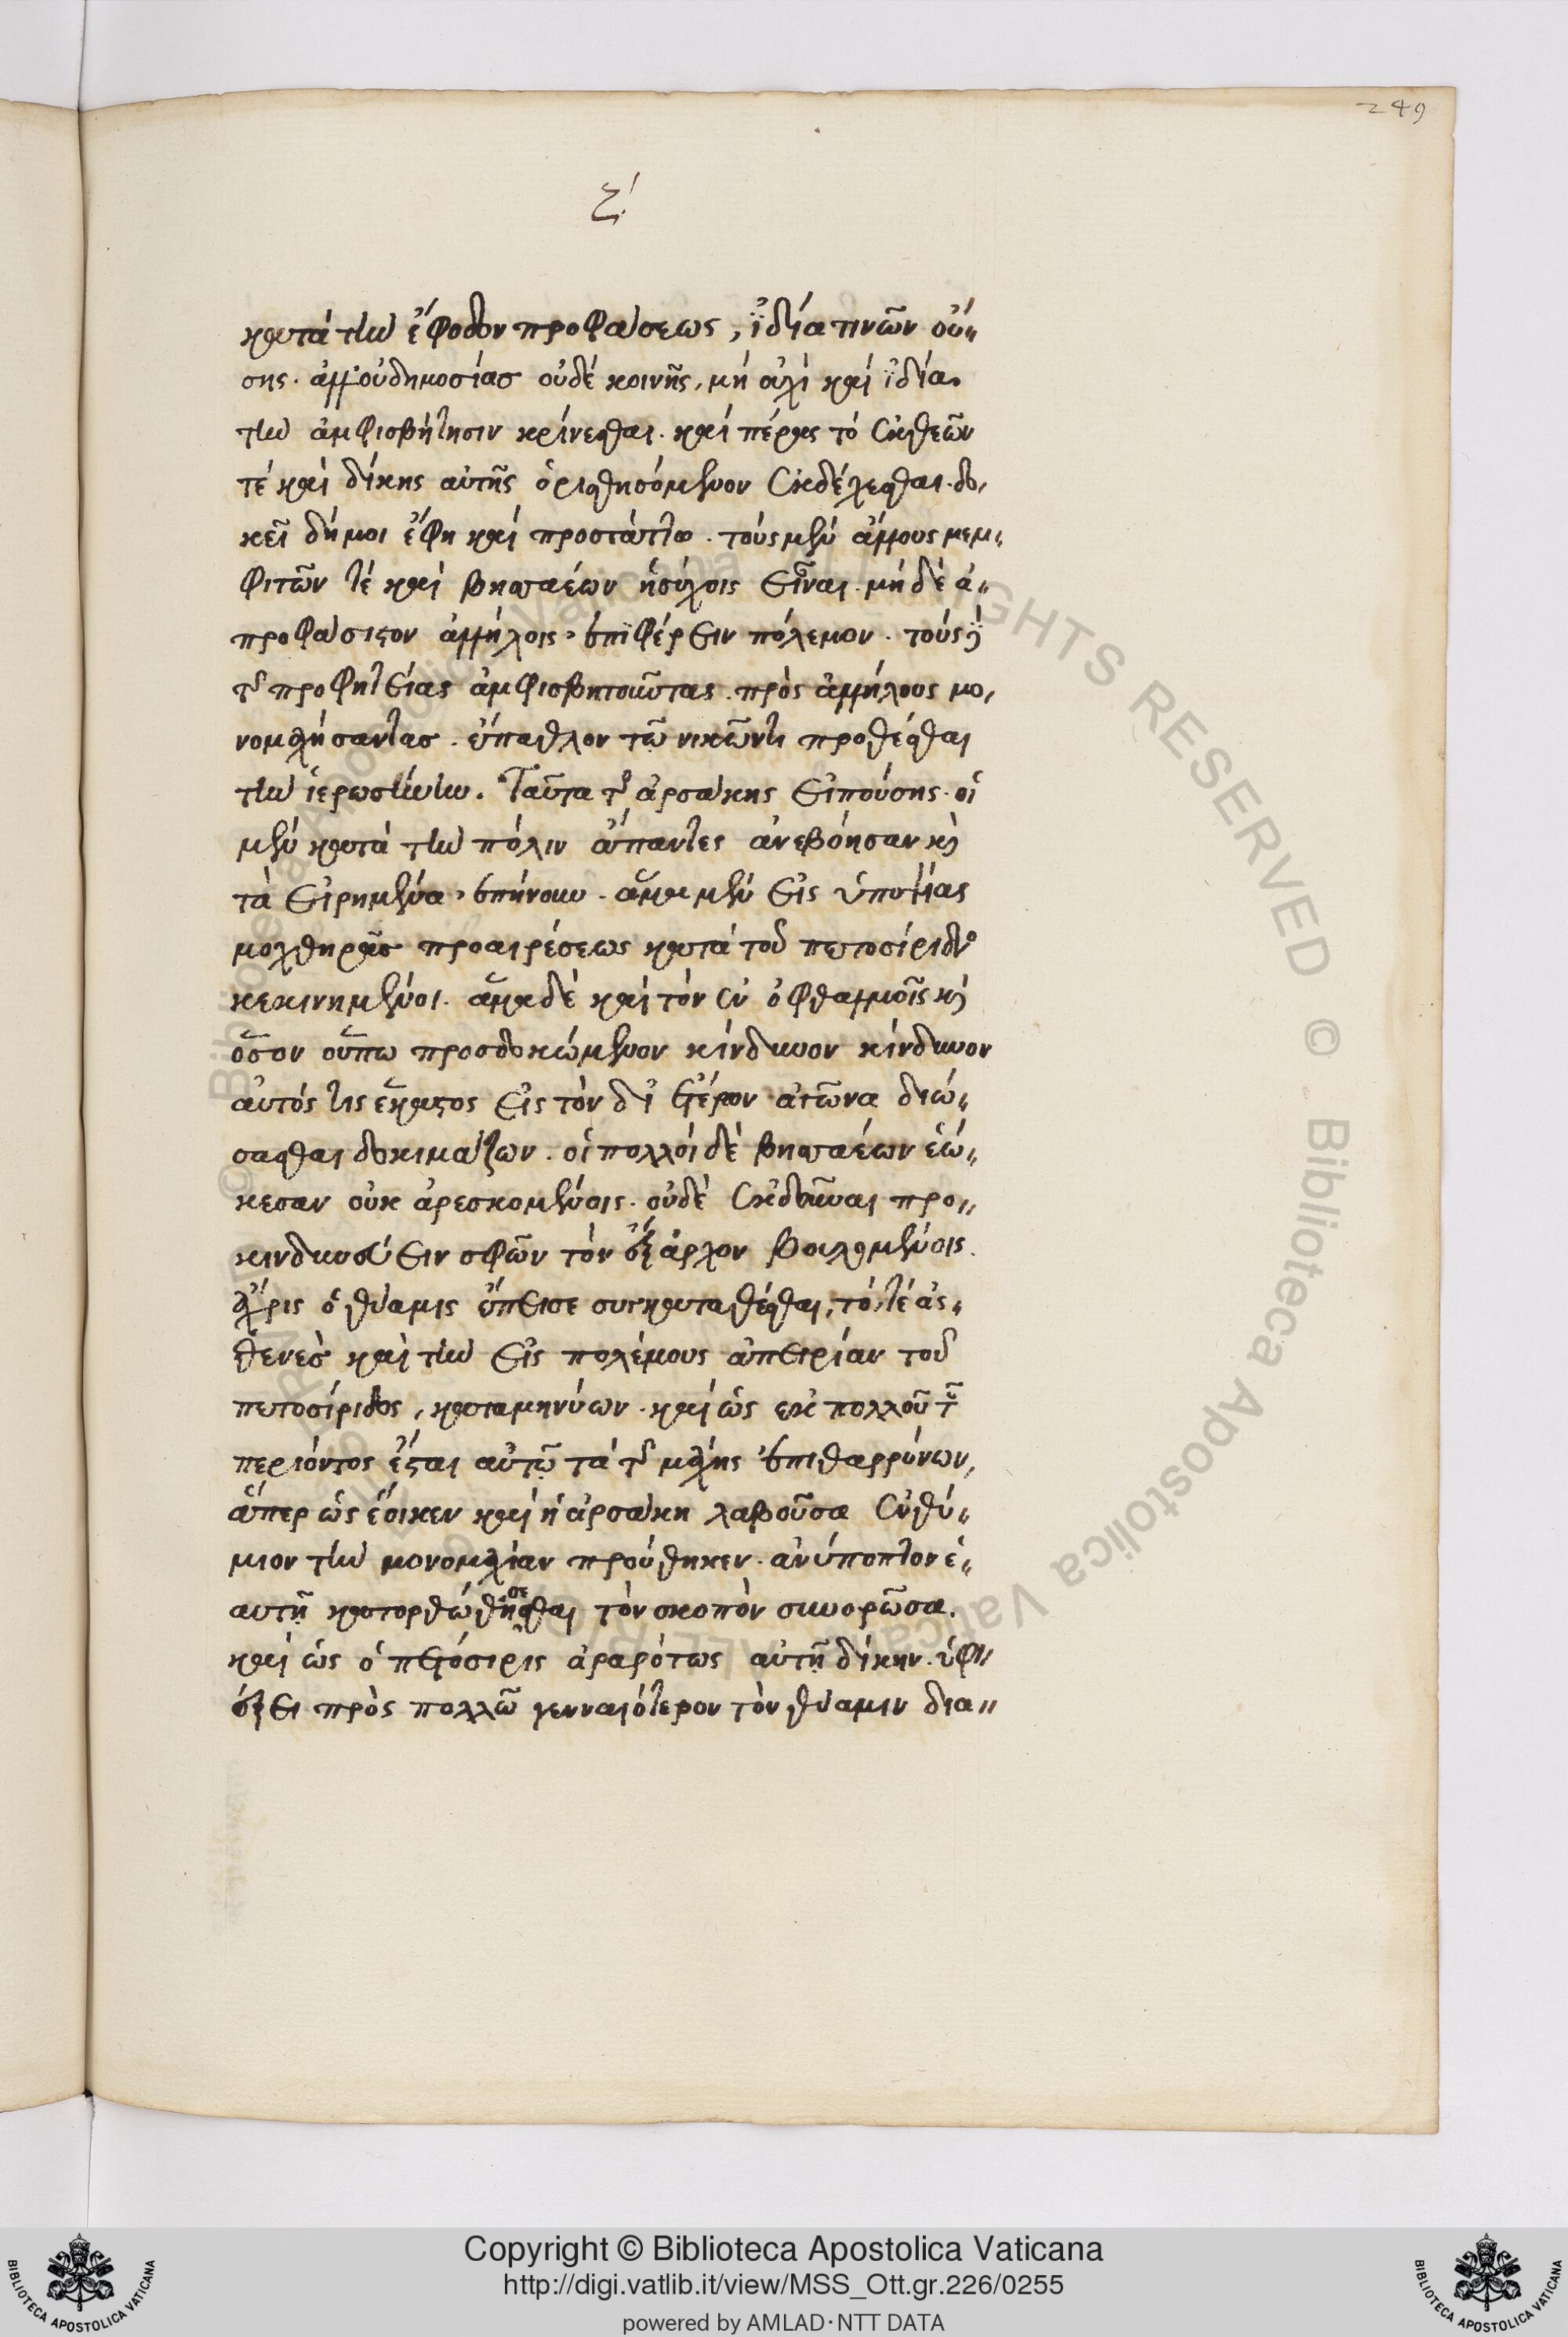 249
ζ΄
κατὰ τὴν ἔφοδον προφάσεως, ἰδία τινῶν οὔ-
σης. ἀλλ' οὐ δημοσίας οὐδὲ κοινῆς, μὴ οὐχὶ καὶ ἰδία
τὴν ἀμφισβήτησιν κρίνεσθαι. καὶ πέρας τὸ ἐκ θεῶν
τέ καὶ δίκης αὐτῆς ὁρισθησόμενον ἐκδέχεσθαι. δο-
κεῖ δή μοι ἔφη καὶ προστάττω. τοὺς μὲν ἄλλους μεμ-
φιτῶν τέ καὶ βησσαέων ἡσύχοις εἶναι. μὴ δὲ ἀ-
προφάσιστον ἀλλήλοις ἐπιφέρειν πόλεμον. τοὺς δὲ
τῆς προφητείας ἀμφισβητοῦντας. πρὸς ἀλλήλους μο-
νομαχήσαντας. ἔπαθλον τῶ νικῶντι προθέσθαι
τὴν ἱερωσύνην. Ταῦτα τῆς ἀρσάκης εἰπούσης. οἱ
μὲν κατὰ τὴν πόλιν ἅπαντες ἀνεβόησαν καὶ
τὰ εἰρημένα ἐπήνουν. ἅμα μὲν εἰς ὑποψίας
μοχθηρᾶς προαιρέσεως κατὰ τοῦ πετοσίριδος
κεκινημένοι. ἅμα δὲ καὶ τὸν ἐν ὀφθαλμοῖς καὶ
ὅσον οὔπω προσδοκώμενον κίνδυνον κίνδυνον
αὐτός τις ἕκαστος εἰς τὸν δι' ἑτέρων ἀγῶνα διώ-
σασθαι δοκιμάζων. οἱ πολλοὶ δὲ βησσαέων ἐώ-
κεσαν οὐκ ἀρεσκομένοις. οὐδὲ ἐκδοῦναι προ-
κινδυνεύειν σφῶν τὸν ἔξαρχον βουλομένοις.
ἄχρις ὁ θύαμις ἔπεισε συγκαταθέσθαι, τό, τέ ἀσ-
θενὲς καὶ τὴν εἰς πολέμους ἀπειρίαν τοῦ
πετοσίριδος, καταμηνύων. καὶ ὡς ἐκ πολλοῦ τοῦ
περιόντος ἔσται αὐτῶ τὰ τῆς μάχης ἐπιθαρρύνων,
ἅπερ ὡς ἔοικεν καὶ ἡ ἀρσάκη λαβοῦσα ἐνθύ-
μιον τὴν μονομαχίαν προύθηκεν. ἀνύποπτον ἑ-
αυτῇ κατορθωθήσεσθαι τὸν σκοπὸν συνορῶσα.
καὶ ὡς ὁ πετόσιρις ἀραρότως αὐτῇ δίκην. ὑφ-
έξει πρὸς πολλῶ γενναιότερον τὸν θύαμιν δια-
© Biblioteca Apostolica Vaticana ALL RIGHTS RESERVED © Biblioteca Apostolica Vaticana ALL RIGHTS RESERVED
Copyright © Biblioteca Apostolica Vaticana
http://digi.vatlib.it/view/MSS_Ott.gr.226/0255
powered by AMLAD·NTT DATA
BIBLIOTECA APOSTOLICA VATICANA
BIBLIOTECA APOSTOLICA VATICANA